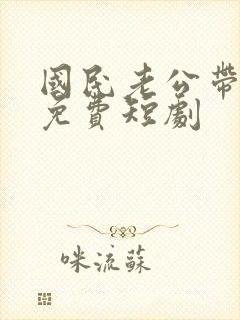 國民老公帶
免費短劇
咪流蘇